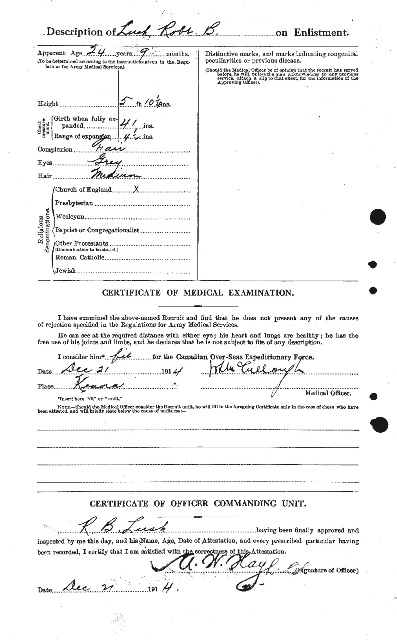 Description of Lush, Robt. B. on Enlistment.
Apparent Age 24 years 9 months.
(To be determined according to the instructions given in the Regulations for Army Medical Services.)
Distinctive marks, and marks indicating congenital
peculiarities or previous disease.
(Should the Medical Officer be of opinion that the recruit has served
before, he will, unless the man acknowledges to any previous
service, attach a slip to that effect, for the information of the
Approving Officer).
Height 5 ft. 10½ ins.
Chest measurement
Girth when fully expanded 41 ins.
Range of expansion 4½ ins.
Complexion Fair
Eyes Grey
Hair Medium
Religious denominations.
Church of England X
Presbyterian
Wesleyan
Baptist or Congregationalist
Other Protestants
(Denomination to be stated.)
Roman Catholic
Jewish
CERTIFICATE OF MEDICAL EXAMINATION.
I have examined the above-named Recruit and find that he does not present any of the causes
of rejection specified in the Regulations for Army Medical Services.
He can see at the required distance with either eye; his heart and lungs are healthy; he has the
free use of his joints and limbs, and he declares that he is not subject to fits of any description.
I consider him* fit for the Canadian Over-Seas Expeditionary Force.
Date Dec 21 1914
Place Kenora
Medical Officer.
*Insert here "fit" or "unfit."
NOTE.—Should the Medical Officer consider the Recruit unfit, he will fill in the foregoing Certificate only in the case of those who have
been attested, and will briefly state below the cause of unfitness:—
CERTIFICATE OF OFFICER COMMANDING UNIT.
R. B. Lush having been finally approved and
inspected by me this day, and his Name, Age, Date of Attestation, and every prescribed particular having
been recorded, I certify that I am satisfied with the correctness of this Attestation.
A. W. Hay (Signature of Officer)
Date Dec 21 1914.